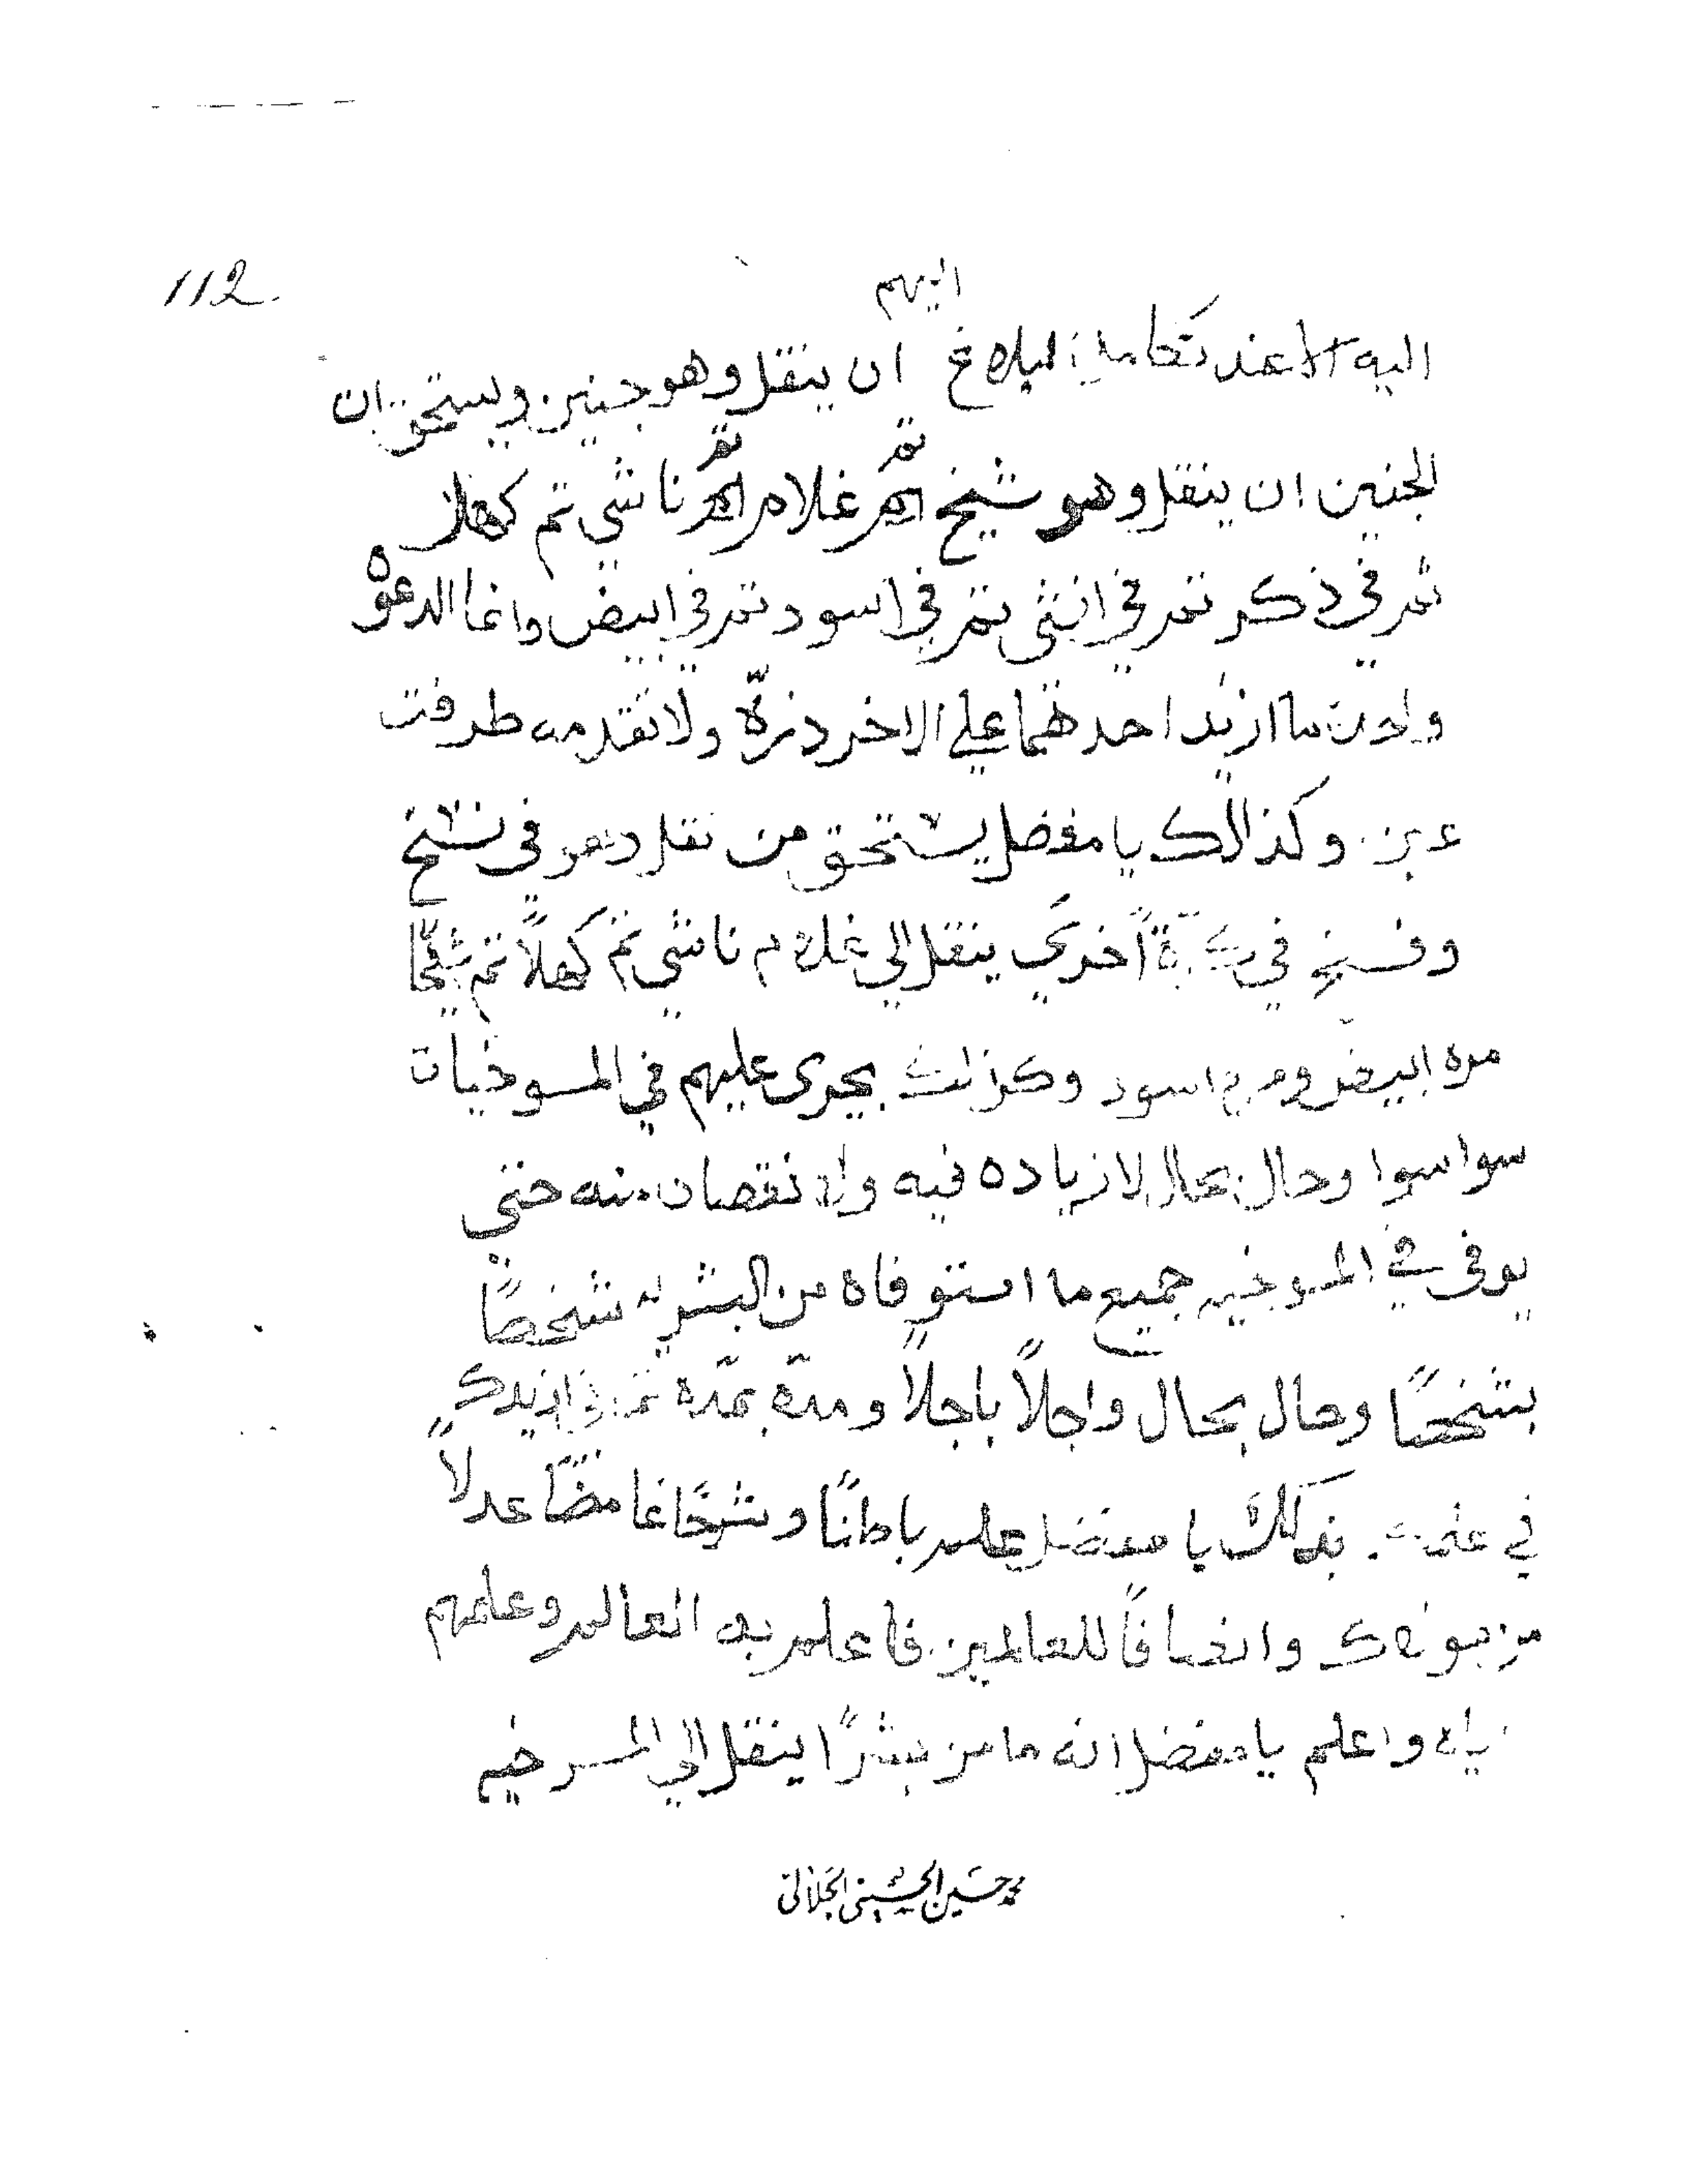 112
اليهم
اليه الا عند تكامل البلاغ ان ينقل وهو جنين ويستحق ان
الجنين ان ينقل وهو شيخ ثم غلام ثم ناشي ثم كهلاً
ثم في ذكر ثم في انثى ثم في اسود ثم في ابيض وانما الدعوه
ازيد احدهما علي الاخر ذرّة ولا تقدمه طرفت
عين وكذالك يا مفضل يستحق من نقل وهو في نسخ
وفسخ في اخري ينقل الي غلام ناشي ثم كهلاً ثم شيخًا
مره ابيض ومره اسود وكذلك يجرى عليهم في المسوخيات
سوا سوا وحال بحال لا زياده فيه ولا نقصان منه حتي
يوفى في المسوخيه جميع ما استوفاه من البشريه شخصًا
بشخصًا وحال بحال واجلاً باجلاً ومدّة بمدّة ازيدك
في بذلك يا مفضل علم باطنًا وشرحًا غامضًا عدلاً
وانصافًا للعالمين فاعلم به العالم وعلمهم
واعلم يا مفضل انه ما من بشرًا ينقل الي المسوخيه
محمد حسين الحسيني الجلالي